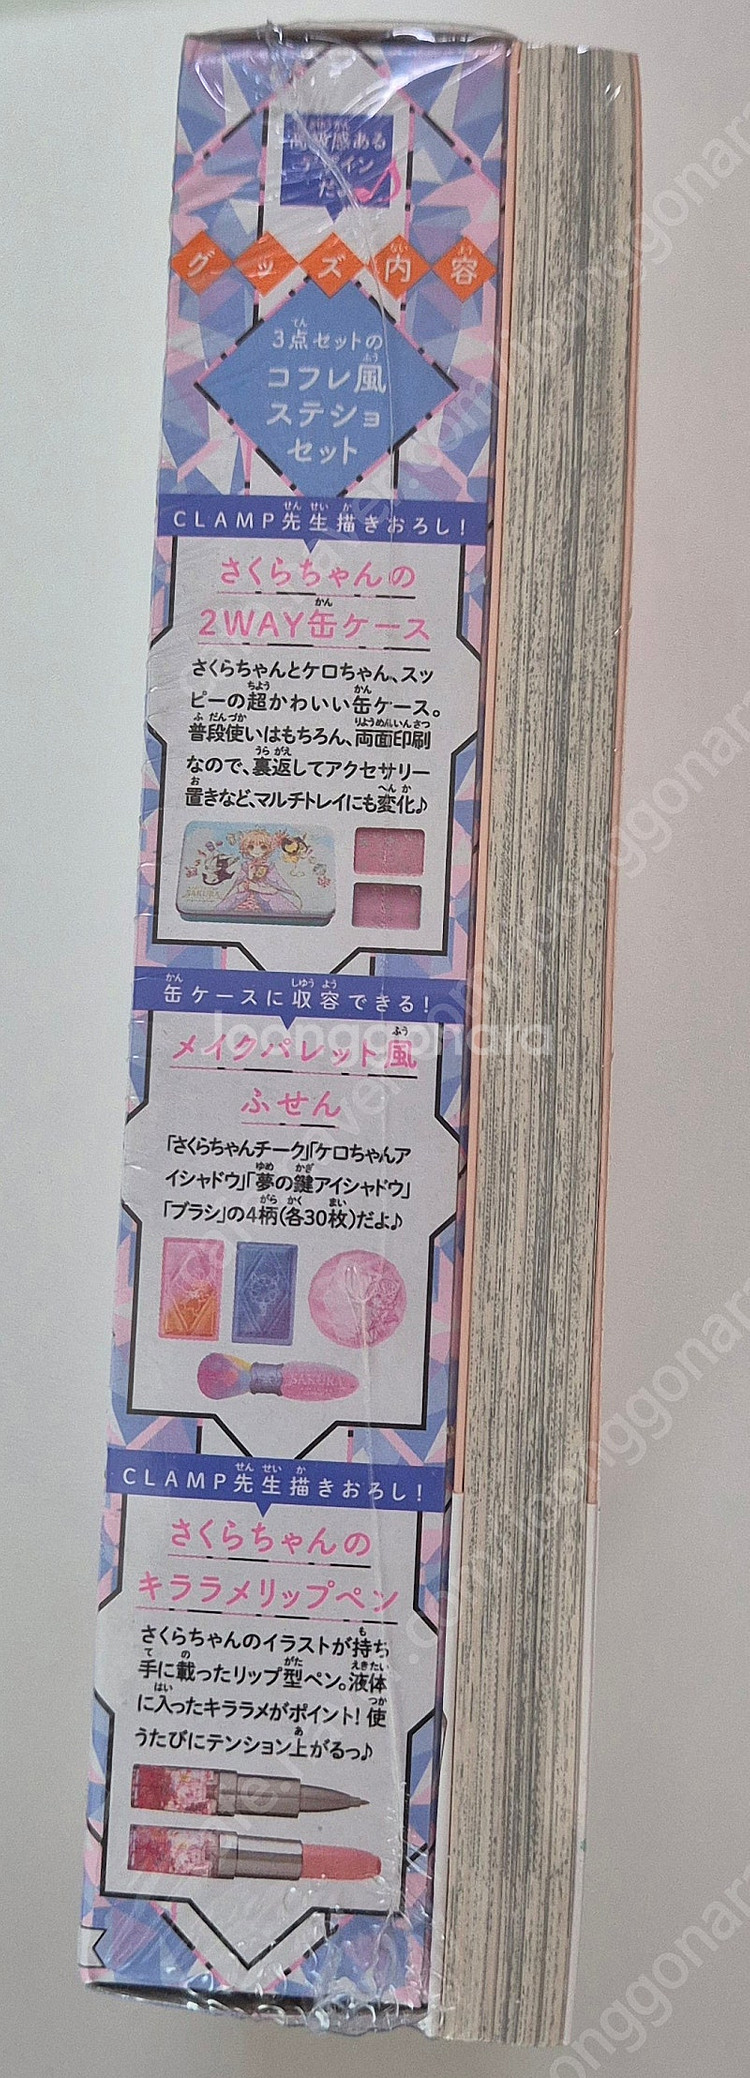 高級感ある
デザイン
だよ♪
グッズ内容
3点セットの
コフレ風
ステショ
セット
CLAMP先生描きおろし!
さくらちゃんの
2WAY缶ケース
さくらちゃんとケロちゃん、スッ
ピーの超かわいい缶ケース。
普段使いはもちろん、両面印刷
なので、裏返してアクセサリー
置きなど、マルチトレイにも変化♪
缶ケースに収容できる!
メイクパレット風
ふせん
「さくらちゃんチーク」「ケロちゃんア
イシャドウ」「夢の鍵アイシャドウ」
「ブラシ」の4柄(各30枚)だよ♪
SAKURA
CLAMP先生描きおろし!
さくらちゃんの
キララメリップペン
さくらちゃんのイラストが持ち
手に載ったリップ型ペン。液体
に入ったキララメがポイント! 使
うたびにテンション上がるっ♪
Joonggonara